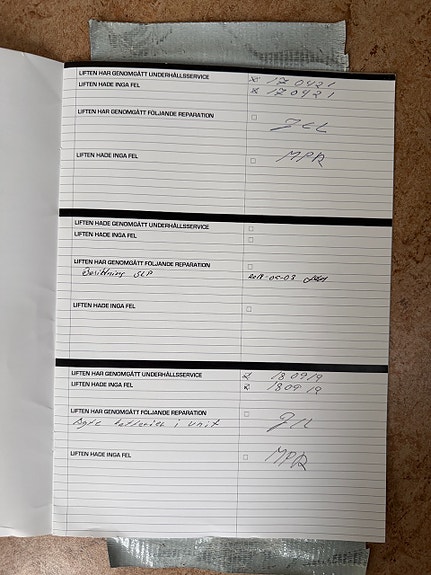 LIFTEN HAR GENOMGÅTT UNDERHÅLLSSERVICE x 170421
LIFTEN HADE INGA FEL x 170421
LIFTEN HAR GENOMGÅTT FÖLJANDE REPARATION
LIFTEN HADE INGA FEL MPR
LIFTEN HADE GENOMGÅTT UNDERHÅLLSSERVICE
LIFTEN HADE INGA FEL
LIFTEN HAR GENOMGÅTT FÖLJANDE REPARATION
Besiktning SLP
LIFTEN HADE INGA FEL
LIFTEN HAR GENOMGÅTT UNDERHÅLLSSERVICE x 180919
LIFTEN HADE INGA FEL x 180919
LIFTEN HAR GENOMGÅTT FÖLJANDE REPARATION
Bytt batterier i unit
LIFTEN HADE INGA FEL MPR